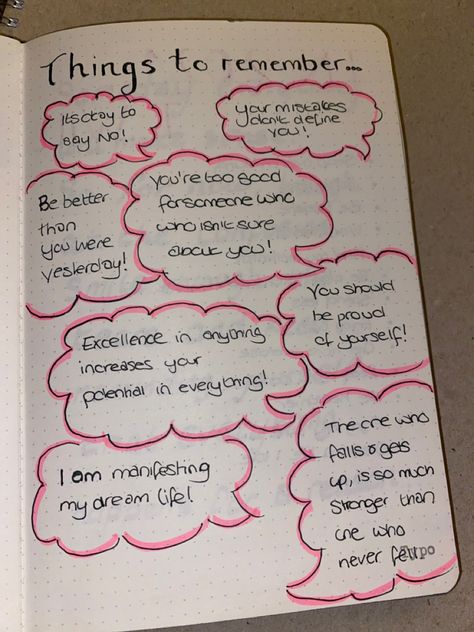 Things to remember...
It's okay to
say NO!
your mistakes
don't define
you!
Be better
than
you were
yesterday!
You're too good
for someone who
who isn't sure
about you!
You should
be proud
of yourself!
Excellence in anything
increases your
potential in everything!
The one who
falls & gets
up, is so much
stronger than
one who
never fell.
I am manifesting
my dream life!